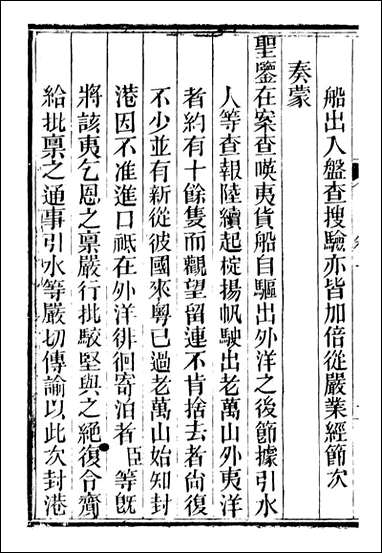 船出入盤查搜驗亦皆加倍從嚴業經節次
奏蒙
聖鑒在案查𠸄夷貨船自驅出外洋之後節據引水
人等查報陸續起椗揚帆駛出老萬山外夷洋
者約有十餘隻而觀望留連不肯捨去者尚復
不少並有新從彼國來粵已過老萬山始知封
港因不准進口祗在外洋徘徊寄泊者臣等旣
將該夷乞恩之稟嚴行批駮堅與之絕復令齎
給批稟之通事引水等嚴切傳諭以此次封港